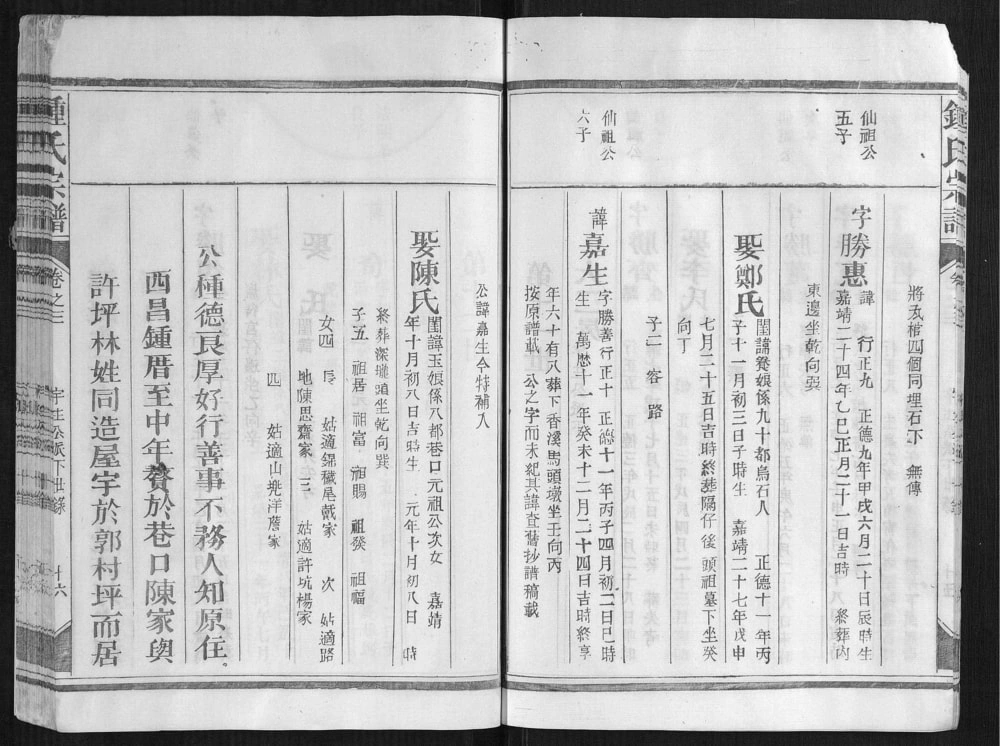 鍾氏宗譜
將瓦棺四個同埋石下 無傳
仙祖公
五子
字勝惠
諱 行正九 正德九年甲戌六月二十日辰時生
嘉靖二十四年乙巳正月二十一日吉時 終葬內
東邊坐乾向巽
娶鄭氏
閨諱 娘係九十都烏石人 正德十一年丙
子十一月初三日子時生 嘉靖二十七年戊申
七月二十五日吉時終葬隔仔後頭祖墓下坐癸
向丁
子二 容 路
仙祖公
六子
諱嘉生
字勝善行正十 正德十一年丙子四月初二日巳時
生 萬曆十一年癸未十二月二十四日吉時終享
年六十有八葬下香溪馬頭墩坐壬向丙
按原譜載 公之字而未紀其諱查舊抄譜稿載
公諱嘉生今特補入
娶陳氏
閨諱玉娘係八都巷口元祖公次女 嘉靖
年十月初八日吉時生 元年十月初八日 時
終葬深壠頭坐乾向巽
子五 祖居 祖富 祖賜 祖發 祖福
女四 長 姑適錦穢尾戴家 次 姑適路
地陳思齋家 三 姑適許坑楊家
四 姑適山兠洋詹家
公種德艮厚好行善事不務人知原住
西昌鍾厝至中年贅於巷口陳家與
許坪林姓同造屋宇於郭村坪而居
鍾氏宗譜
卷之三
宇生公派下世錄
廿六